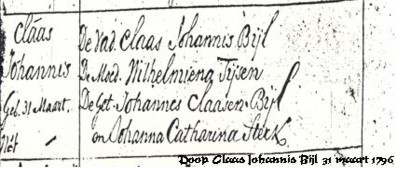 Claas De Vad. Claas Johannis Bijl
Johannis De Moed. Wilhelmiena Tijsen
Geb. 31 Maart. De Get. Johannes Claasen Bijl
en Johanna Catharina Sterk.
Doop Claas Johannis Bijl 31 maart 1796